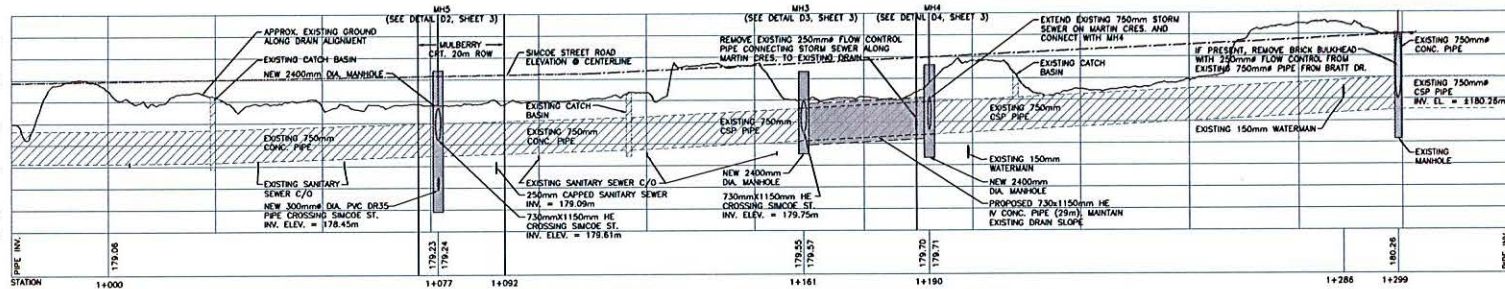 MH5
(SEE DETAIL D2, SHEET 3)
MH3
(SEE DETAIL D3, SHEET 3)
MH4
(SEE DETAIL D4, SHEET 3)
APPROX. EXISTING GROUND
ALONG DRAIN ALIGNMENT
EXISTING CATCH BASIN
NEW 2400mm DIA. MANHOLE
MULBERRY
CRT. 20m ROW
SIMCOE STREET ROAD
ELEVATION @ CENTERLINE
REMOVE EXISTING 250mmø FLOW CONTROL
PIPE CONNECTING STORM SEWER ALONG
MARTIN CRES. TO EXISTING DRAIN
EXTEND EXISTING 750mm STORM
SEWER ON MARTIN CRES. AND
CONNECT WITH MH4
EXISTING CATCH
BASIN
IF PRESENT, REMOVE BRICK BULKHEAD
WITH 250mmø FLOW CONTROL FROM
EXISTING 750mmø PIPE FROM BRATT DR.
EXISTING 750mmø
CONC. PIPE
EXISTING 750mmø
CSP PIPE
INV. EL. = ±180.26m
EXISTING 750mm
CONC. PIPE
EXISTING CATCH
BASIN
EXISTING 750mm
CONC. PIPE
EXISTING 750mm
CSP PIPE
EXISTING 750mm
CSP PIPE
EXISTING 150mm WATERMAIN
EXISTING
MANHOLE
EXISTING SANITARY
SEWER C/O
NEW 300mmø DIA. PVC DR35
PIPE CROSSING SIMCOE ST.
INV. ELEV. = 178.45m
EXISTING SANITARY SEWER C/O
250mm CAPPED SANITARY SEWER
INV. = 179.09m
730mmX1150mm HE
CROSSING SIMCOE ST.
INV. ELEV. = 179.61m
NEW 2400mm
DIA. MANHOLE
730mmX1150mm HE
CROSSING SIMCOE ST.
INV. ELEV. = 179.75m
EXISTING 150mm
WATERMAIN
NEW 2400mm
DIA. MANHOLE
PROPOSED 730x1150mm HE
IV CONC. PIPE (29m), MAINTAIN
EXISTING DRAIN SLOPE
PIPE INV.
179.06
179.23
179.24
179.55
179.57
179.70
179.71
180.26
STATION
1+000
1+077
1+092
1+161
1+190
1+286
1+299